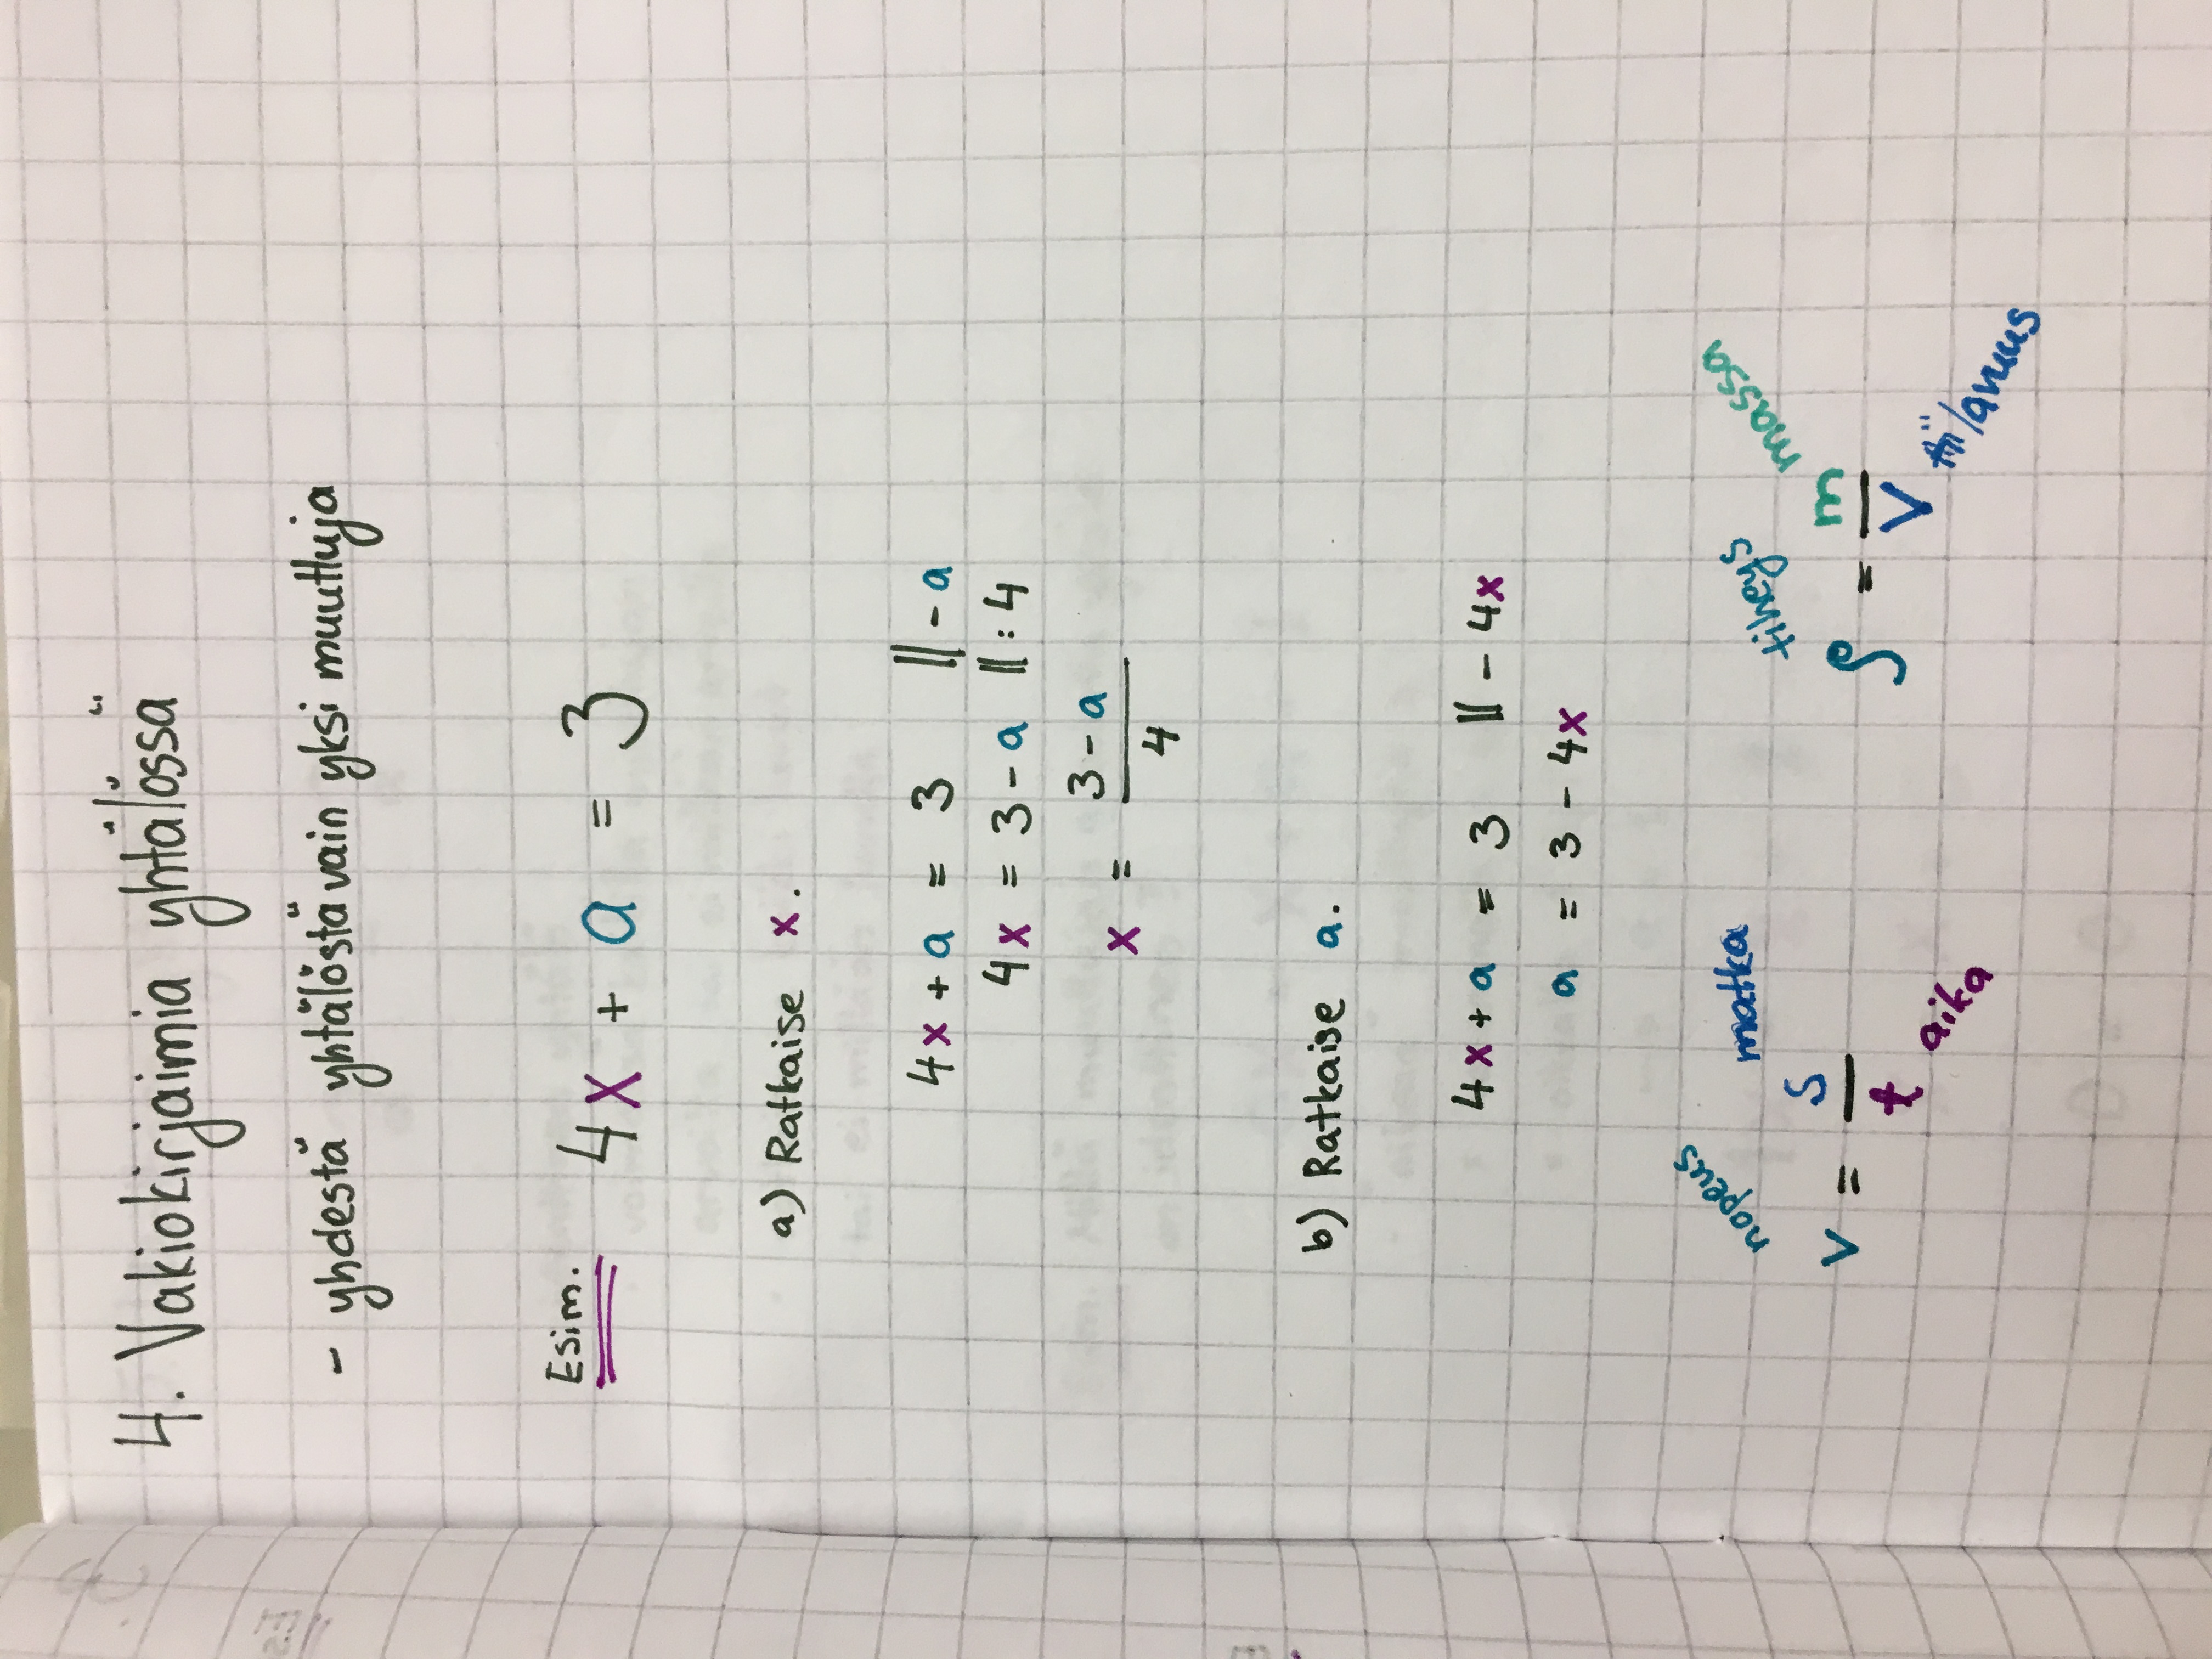 4. Vakiokirjaimia yhtälössä
- yhdestä yhtälöstä vain yksi muuttuja
Esim. 4x + a = 3
a) Ratkaise x.
4x + a = 3 || - a
4x = 3 - a || : 4
x = \frac{3 - a}{4}
b) Ratkaise a.
4x + a = 3 || - 4x
a = 3 - 4x
nopeus matka tiheys massa
v = \frac{s}{t} ρ = \frac{m}{V}
aika